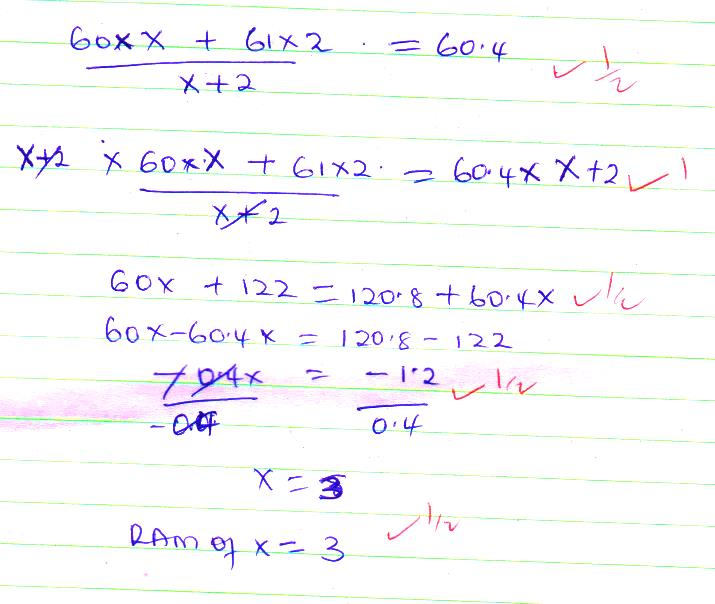 60xX + 61x2 = 60.4 ✓ 1/2
x+2
X+2 x 60x.X + 61x2. = 60.4x X+2 ✓ 1
x+2
60x + 122 = 120.8 + 60.4x ✓ 1/2
60x-60.4x = 120.8 - 122
-0.4x = -1.2 ✓ 1/2
-0.4 0.4
x = 3
RAM of x = 3 ✓ 1/2